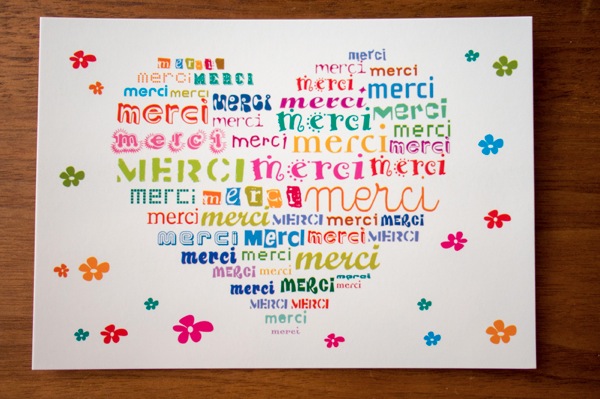 merci merci
merci MERCI merci merci
merci merci merci merci
merci MERCI merci MERCI
merci merci merci
merci merci merci merci
MERCI merci merci
merci merci merci
merci merci MERCI merci MERCI
merci MERCI merci MERCI
merci merci merci
MERCI merci merci
merci MERCI merci
MERCI MERCI
merci
merci